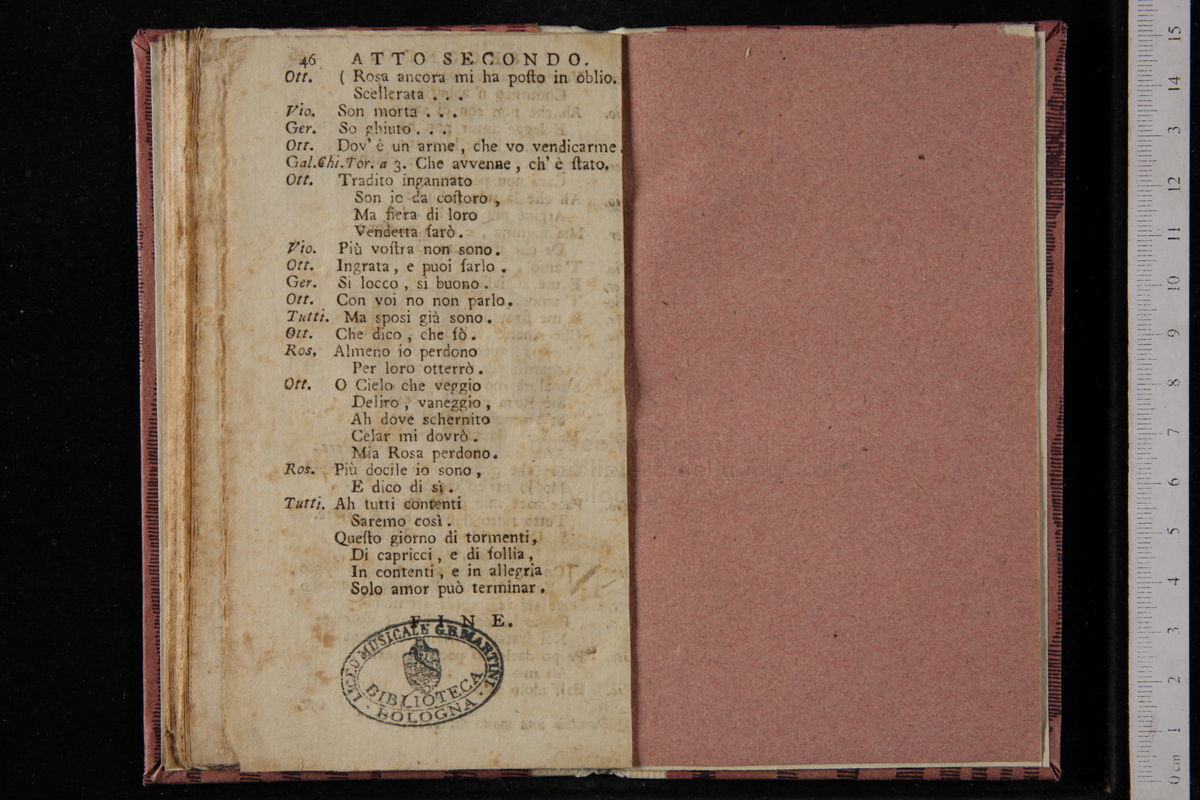 46 ATTO SECONDO.
Ott. ( Rosa ancora mi ha poſto in oblio.
Scellerata . . .
Vio. Son morta . . .
Ger. So ghiuto . . .
Ott. Dov' è un arme , che vo vendicarme.
Gal. Chi. Tor. a 3. Che avvenne, ch' è ſtato.
Ott. Tradito ingannato
Son io da coſtoro ,
Ma fiera di loro
Vendetta farò .
Vio. Più voſtra non sono .
Ott. Ingrata , e puoi farlo .
Ger. Sì locco , sì buono .
Ott. Con voi no non parlo .
Tutti. Ma sposi già sono .
Ott. Che dico , che fò .
Ros. Almeno io perdono
Per loro otterrò .
Ott. O Cielo che veggio
Deliro , vaneggio ,
Ah dove schernito
Celar mi dovrò .
Mia Rosa perdono .
Ros. Più docile io sono ,
E dico di sì .
Tutti. Ah tutti contenti
Saremo così .
Queſto giorno di tormenti ,
Di capricci , e di follia ,
In contenti , e in allegria
Solo amor può terminar .
FINE.
LICEO MUSICALE G.B. MARTINI
BIBLIOTECA
· BOLOGNA ·
0 cm 1 2 3 4 5 6 7 8 9 10 11 12 13 14 15